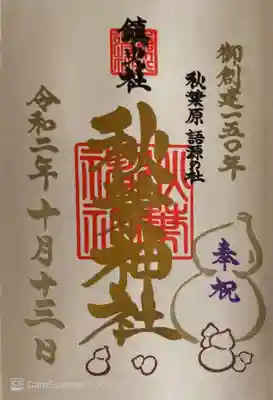 御創建一五〇年
秋葉原 語源の社
奉祝
鎮火社
秋葉神社
令和二年十月十三日
CS CamScanner